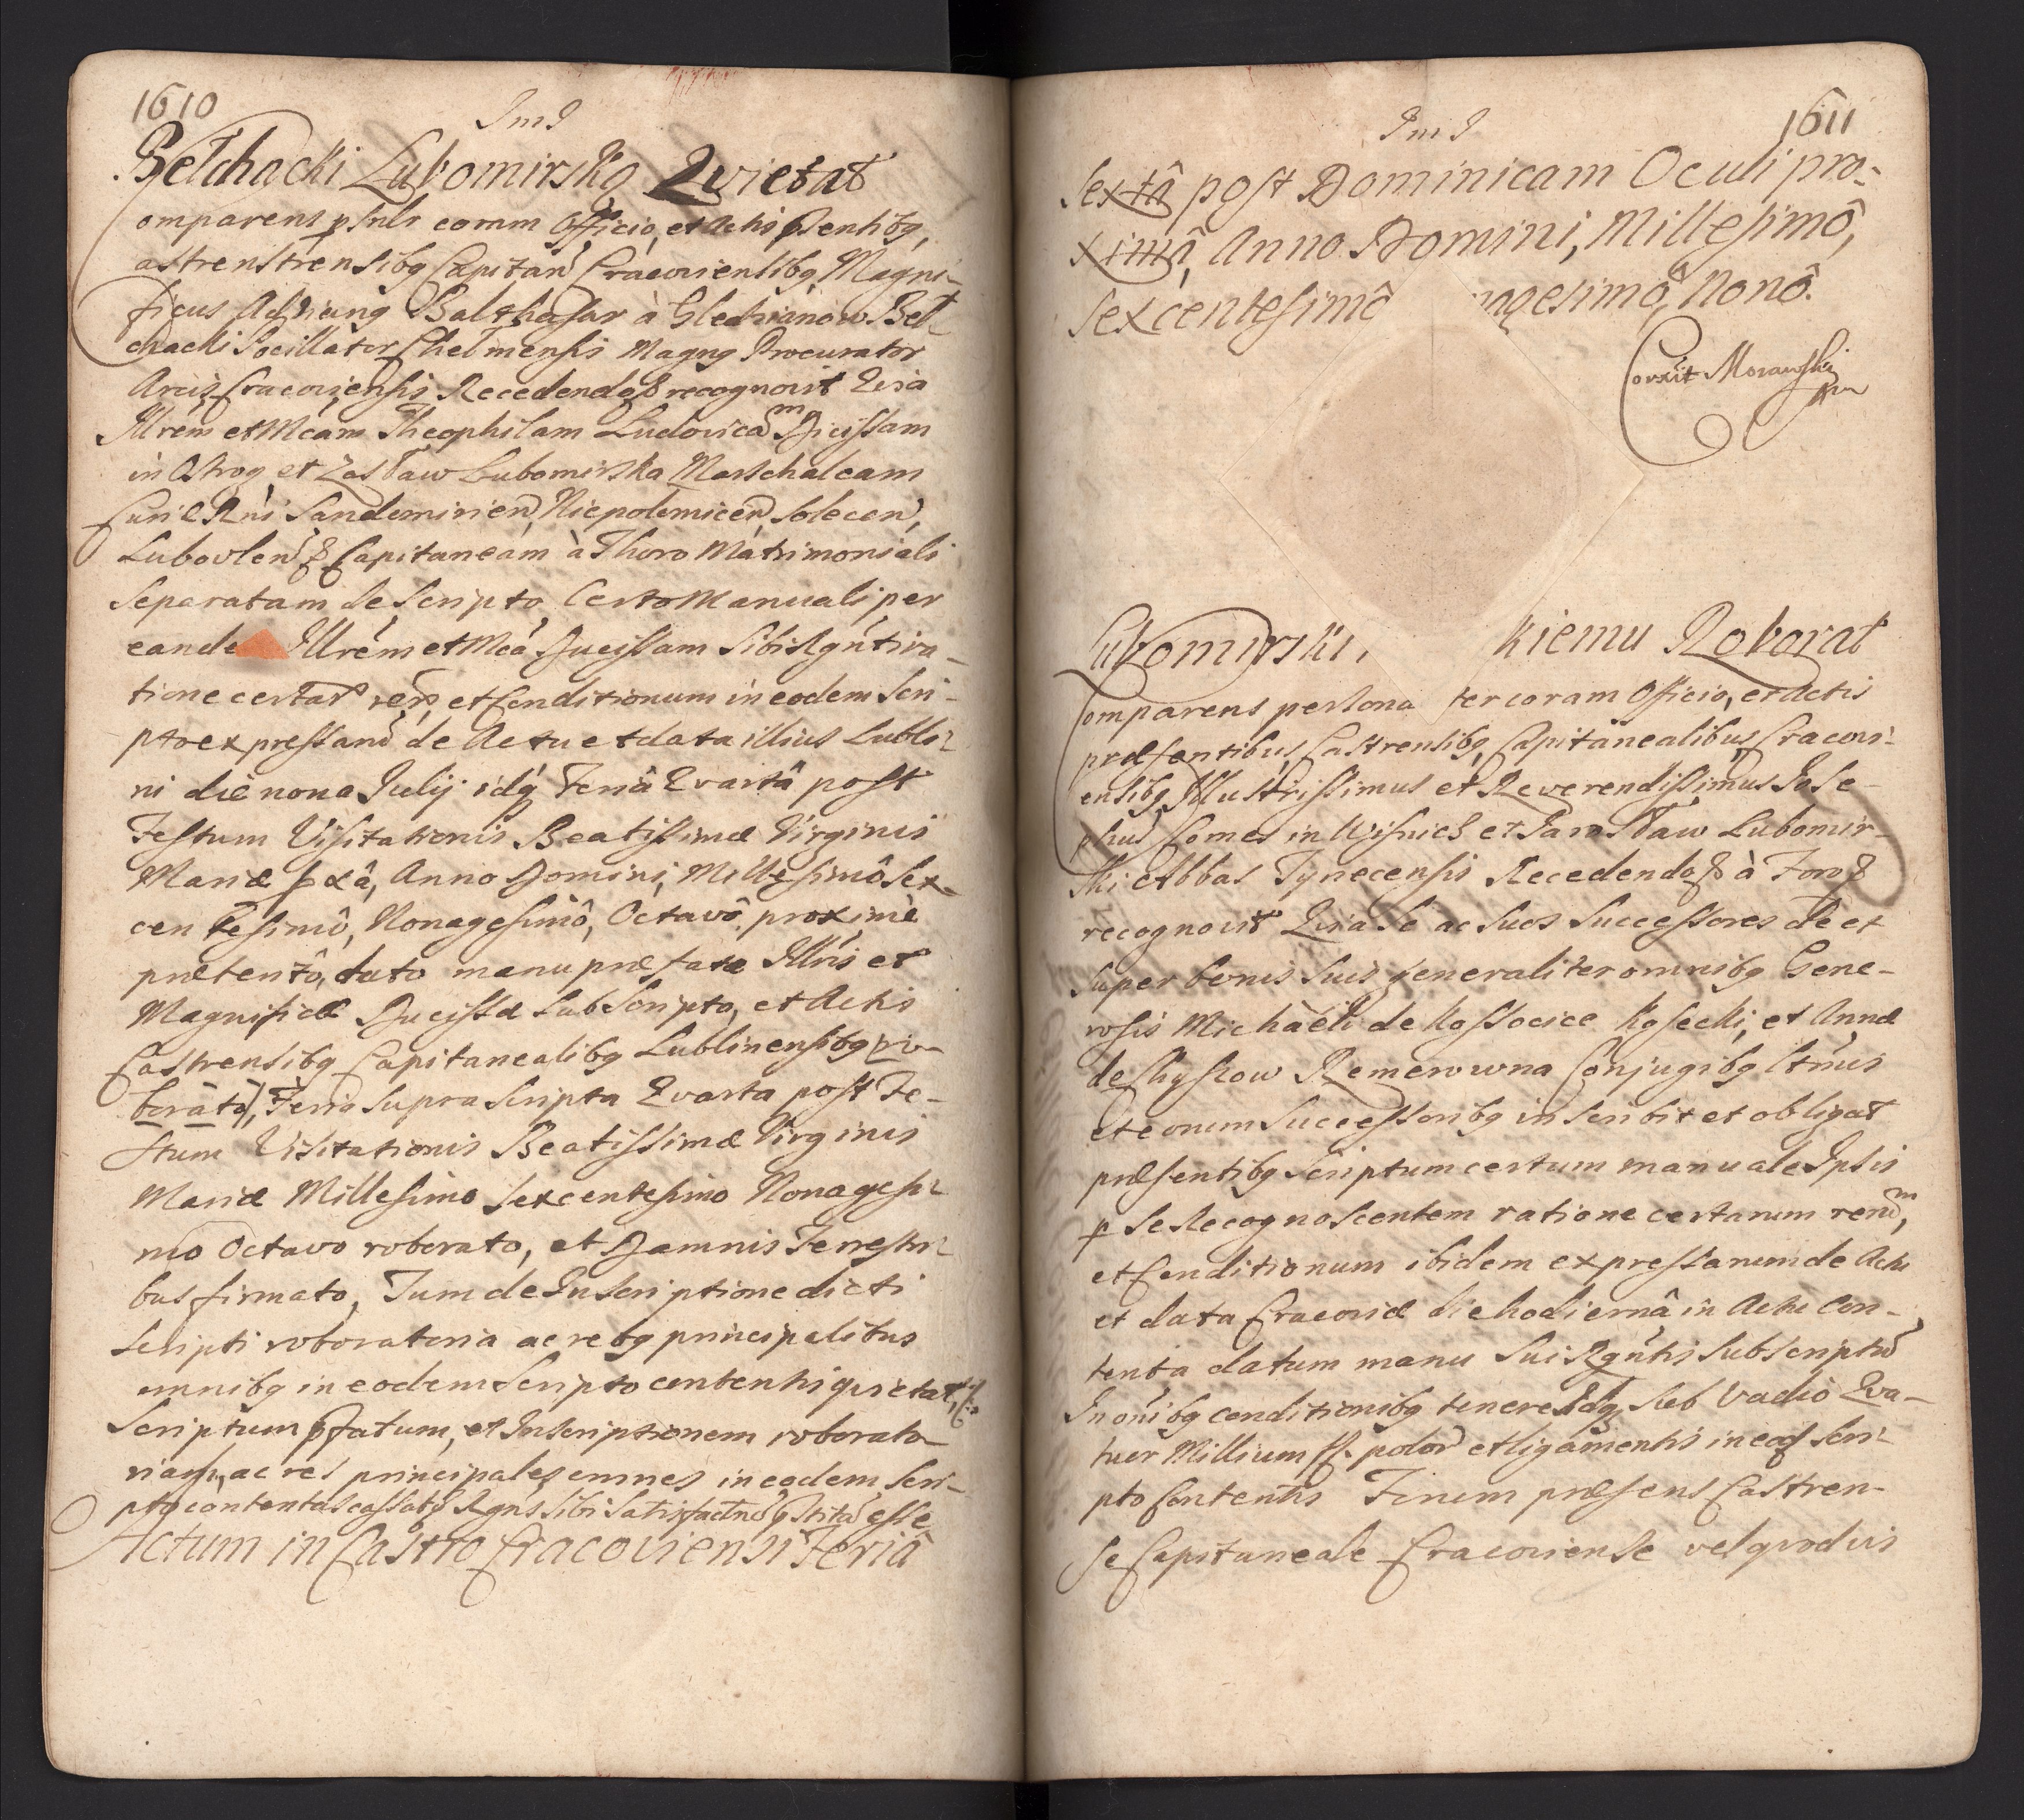 1610
Ind
Belchacki Lubomirska Qvietat
omparens psnlr coram Officio, et Actis psentibq,
astrenstrensibq Capitan Cracoviensibq Magni-
ficus Adrianq Balthasar à Glechianow Bel-
chacki Pocillator Chelmensis Magnq Procurator
Arcis Cracoviensis Recedendo & recognovit Qvia
Illrem et Mcam Theophilam Ludovicam Ducissam
in Ostrog et Zasław Lubomirska Marschalcam
Curiæ Rni Sandomirien, Niepolomicen, Solecen,
Lubovlen & Capitaneam à Thoro Matrimoniali
Separatam de Scripto Certo Manuali per
eande Illrem et Mcã Ducissam Sibi Rgnti ra-
tione certar rerũ et Conditionum in eodem Scri-
pto expressand de Actu et data illius Lubli-
ni die nona Julij idq Feriâ Qvartâ post
Festum Visitationis Beatissimæ Virginis
Mariæ pxâ, Anno Domini, Millesimô Sex-
centesimô, Nonagesimô, Octavô proximè
præteritô, dato manu præfatæ Illris et
Magnificæ Ducissæ Subscripto, et Actis
Castrensibq Capitanealibq Lublinensibq ro-
borato, Feria supra scripta Qvarta post Fe-
stum Visitationis Beatissimæ Virginis
Mariæ Millesimo Sexcentesimo Nonagesi-
mo Octavo roborato, et Damnis Terrestri-
bus firmato, Tum de Inscriptione dicti
Scripti roboratoria ac rebq principalibus
omnibq in eodem Scripto contentis qvietat,
Scriptum pfatum, et Inscriptionem roborato-
riam, ac res principales omnes in eodem Scri-
pto contentas cassat, Rgns sibi satisfactũ esse
Actum in Castro Cracoviensi Feriâ
1611
Ind
Sextâ post Dominicam Oculi pro-
ximâ, Anno Domini, Millesimô,
Sexcentesimô nagesimô, Nonô.
Corxit Moranski
mp
Lubomirski, kiemu Roborat
omparens persona ter coram Officio, et Actis
præsentibus, Castrensibq, Capitanealibus, Cracovi-
ensibq Illustrissimus et Reverendissimus Jose-
phus Comes in Wisnicz et Jarosław Lubomir-
ski Abbas Tynecensis Recedendo & à Foro &
recognovit Qvia Se ac Suos Successores de et
Super bonis Suis generaliter omnibq Gene-
rosis Michaeli de Kossocice Kosecki, et Annæ
de Chyszow Remerowna Conjugibq ltmis
et eorum Successoribq inscribit et obligat
præsentibq Scriptum certum manuale Ipsis
p Se Recognoscentem ratione certarum rerum,
et Conditionum ibidem expressarum de Actu
et data Cracoviæ die hodiernâ in Actu Con-
tenta datum manu Sui Rgntis Subscriptũ
In oñibq conditionibq tenere Idq sub Vadio Qva-
tuor Millium fl. polor et ligamentis in eod Scri-
pto Contentis Forum præsens Castren-
se Capitaneale Cracoviense vel qvodvis